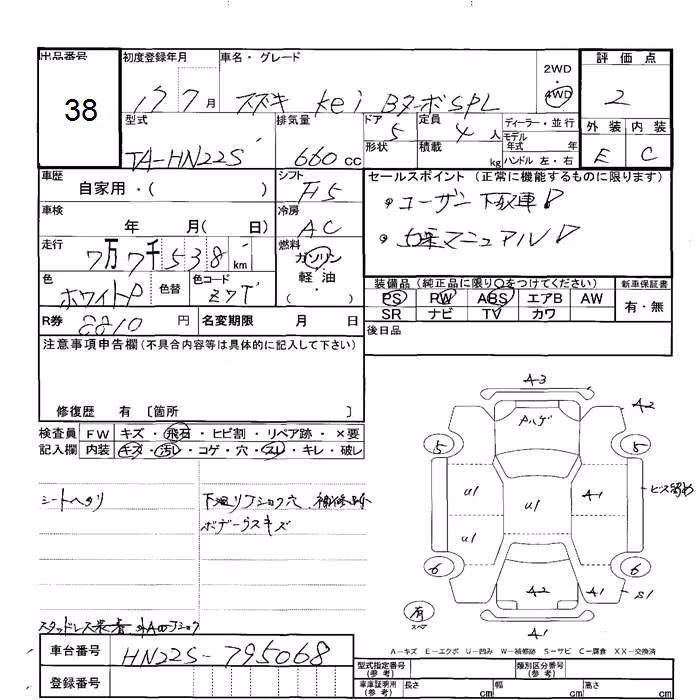 出品番号 初度登録年月 車名・グレード 2WD 4WD 評価点
38 17 7月 スズキ kei Bターボ SPL 2
型式 排気量 ドア 定員 ディーラー・並行 外装 内装
TA-HN22S 660cc 5 4人 モデル年式 年 E C
形状 積載 kg ハンドル 左・右
車歴 シフト セールスポイント(正常に機能するものに限ります)
自家用・( ) F5 ユーザー下取車
車検 冷房
年 月( 日) AC マニュアル
走行 燃料
7万7千538km ガソリン
軽・油
( )
色 色替 色コード 装備品(純正品に限り○をつけてください) 新車保証書
ホワイトP Z7T PS PW ABS エアB AW 有・無
SR ナビ TV カワ
R券 8810円 名変期限 月 日 後日品
注意事項申告欄(不具合内容等は具体的に記入して下さい)
修復歴 有 〔箇所 〕
検査員 FW キズ・飛石・ヒビ割・リペア跡・×要
記入欄 内装 キズ・汚レ・コゲ・穴・スレ・キレ・破レ
A-3
Aハゲ A-2
5 5
U1 U1 A-1 ビス留め
U1
6 6
A2 A1 S1
有 スペア
A1
シートヘタリ 下廻リフショク穴 補修跡
ボデーウスキズ
A-キズ E-エクボ U-凹み W-補修跡 S-サビ C-腐食 XX-交換済
車台番号 HN22S-795068
登録番号
型式指定番号(参考) 類別区分番号(参考)
車庫証明用(参考) 長さ cm 幅 cm 高さ cm